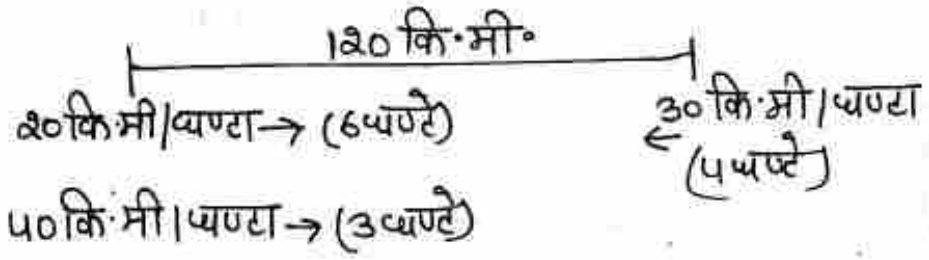 120 कि॰मी॰
20 कि॰मी/घण्टा → (6घण्टे)
30 कि॰मी/घण्टा
← (4घण्टे)
40 कि॰मी/घण्टा → (3घण्टे)